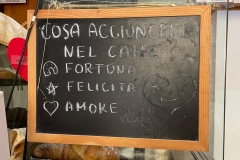 COSA AGGIUNGERE
NEL CAFFÈ
FORTUNA
FELICITÀ
AMORE